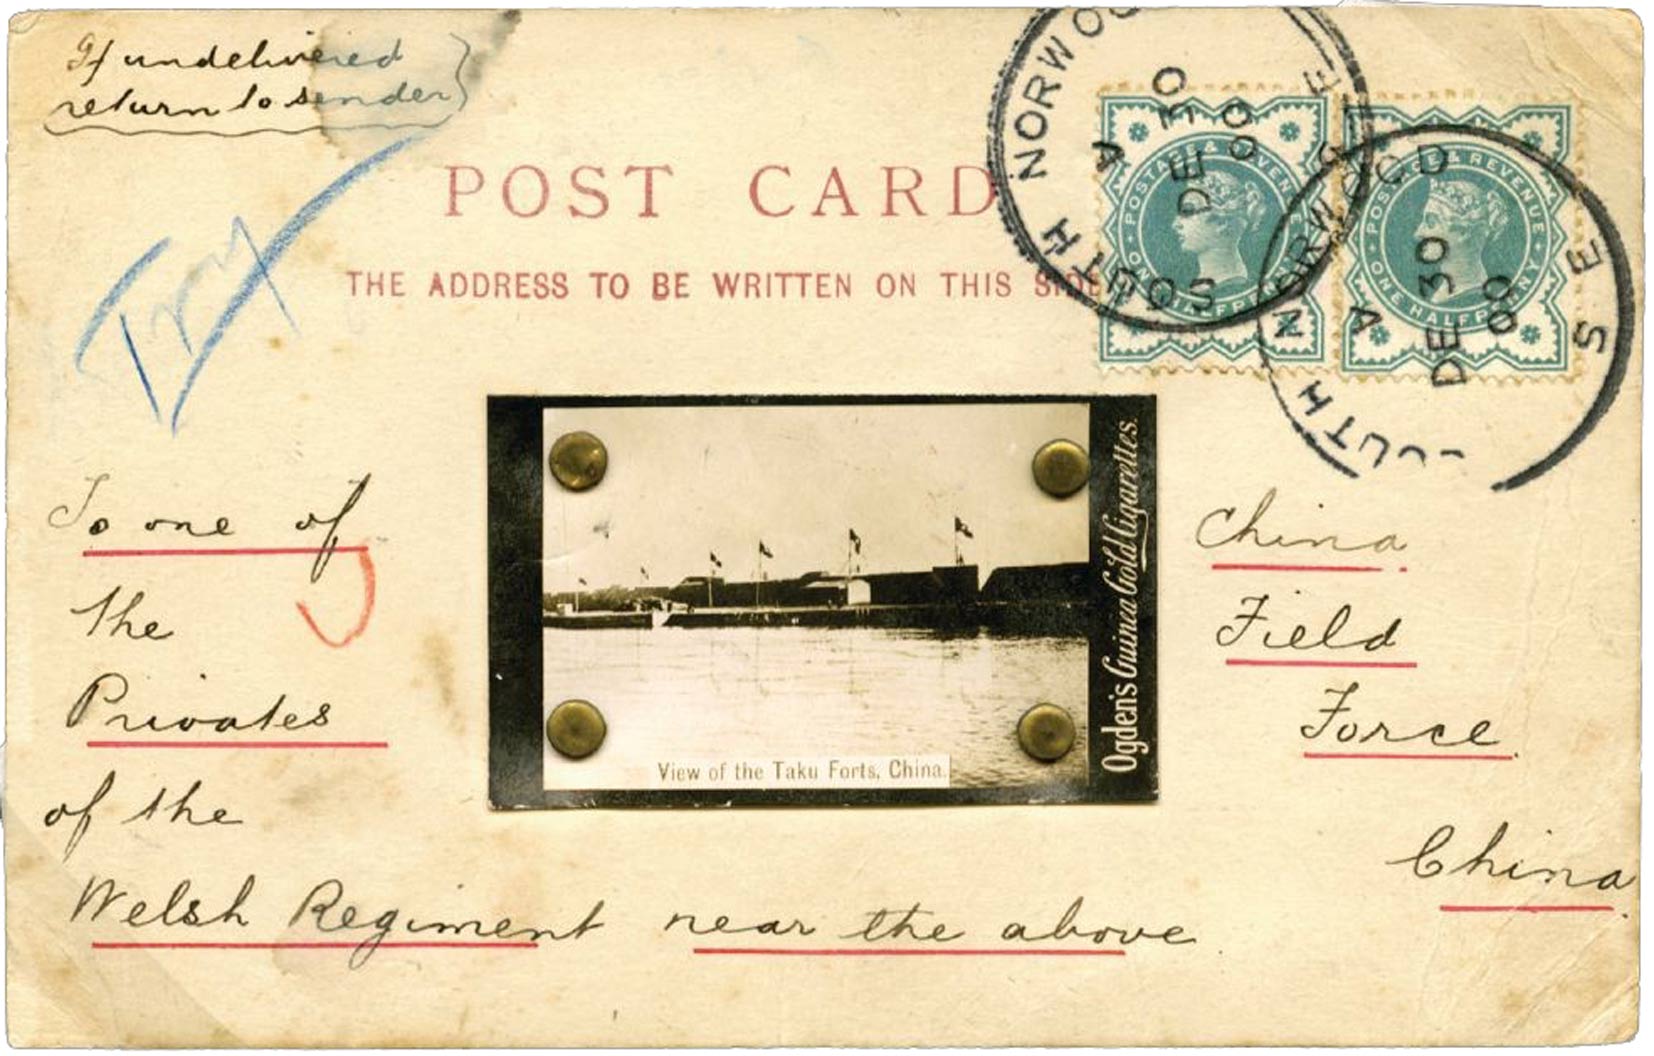 If undelivered
return to sender
Try
POST CARD
THE ADDRESS TO BE WRITTEN ON THIS SIDE
SOUTH NORWOOD S E
A
DE 30
00
SOUTH NORWOOD S E
A
DE 30
00
POSTAGE & REVENUE
ONE HALFPENNY
POSTAGE & REVENUE
ONE HALFPENNY
To one of
the
Privates
of the
Welsh Regiment near the above
View of the Taku Forts, China.
Ogden's Guinea Gold Cigarettes.
China
Field
Force
China